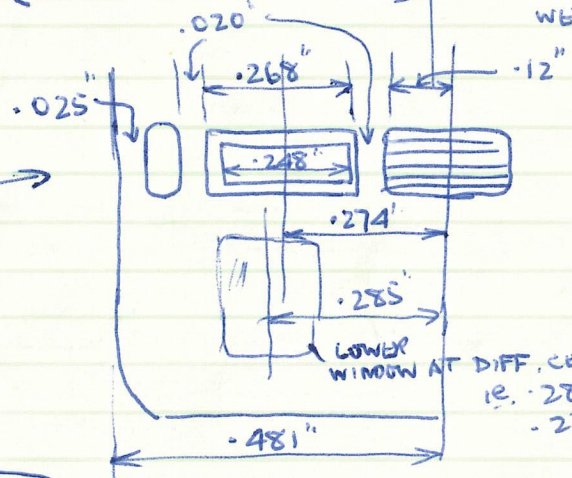 .020"
WE
.268"
.12"
.025"
.248"
.274'
.285"
LOWER
WINDOW AT DIFF. CE
ie. .28
.2
.481"